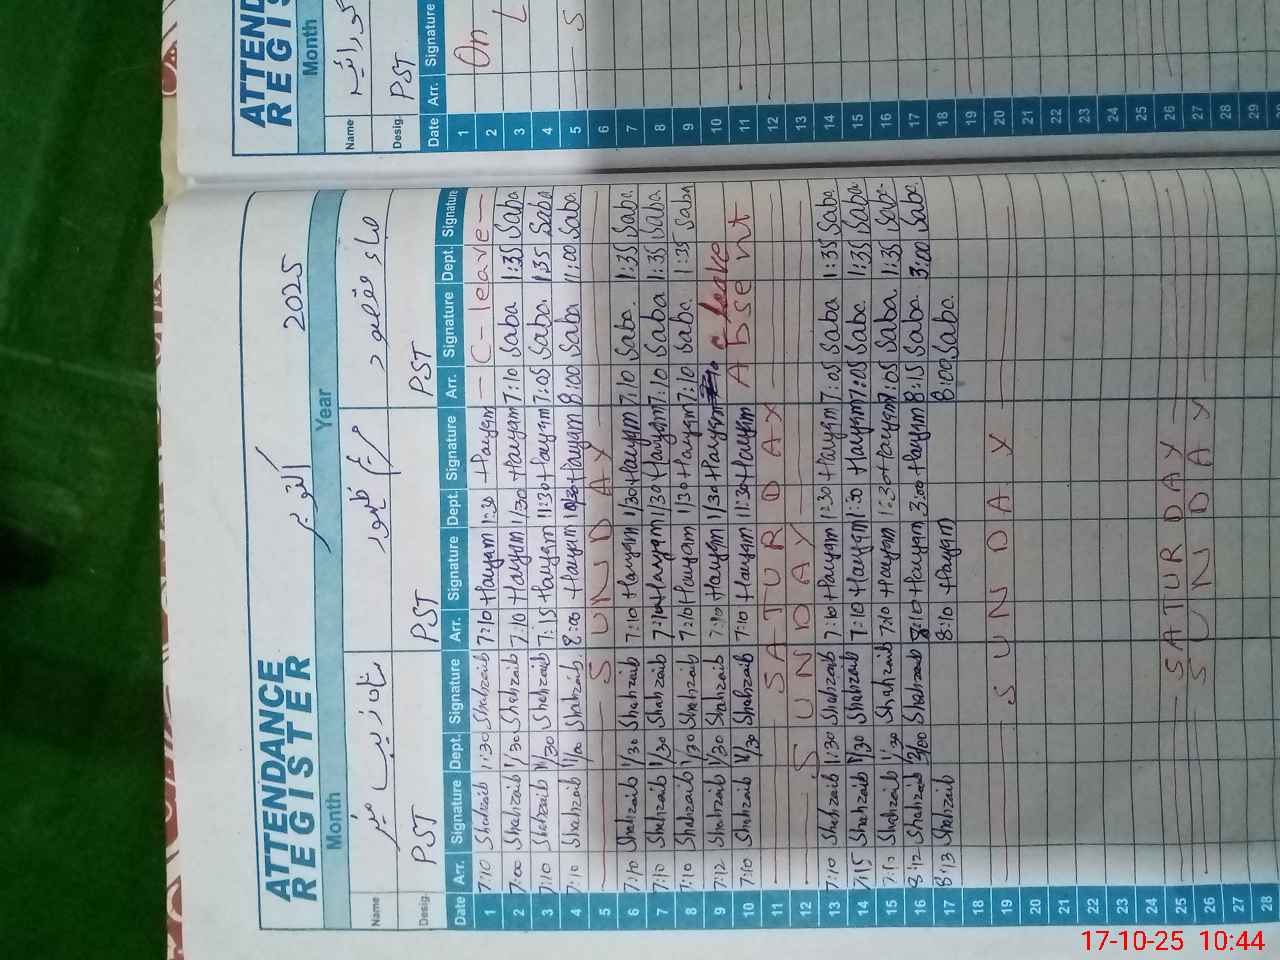 ATTENDANCE
REGISTER
Month اکتوبر Year 2025
Name شاہ زیب منیر صباء مقصود
Desig. PST PST PST
Date Arr. Signature Dept. Signature Arr. Signature Dept. Signature Arr. Signature Dept. Signature
1 7:10 Shahzaib 1:30 Shahzaib 7:10 Hayam 1:30 Hayam — C-leave —
2 7:00 Shahzaib 1/30 Shahzaib 7:10 Hayam 1/30 Hayam 7:10 Saba 1:35 Saba
3 7:10 Shahzaib 11/30 Shahzaib 7:15 Hayam 11:30 Hayam 7:05 Saba. 1:35 Saba
4 7:10 Shahzaib Shahzaib. 8:00 Hayam Hayam 8:00 Saba 11:00 Saba.
5 SUNDAY
6 7:10 Shahzaib 1/30 Shahzaib 7:10 Hayam 1/30 Hayam 7:10 Saba. 1:35 Saba.
7 7:10 Shahzaib 1/30 Shahzaib 7:10 Hayam 1/30 Hayam 7:10 Saba 1:35 Saba.
8 7:10 Shahzaib 1/30 Shahzaib 7:10 Hayam 1/30 Hayam 7:10 Saba. 1:35 Saba
9 7:12 Shahzaib 1/30 Shahzaib 7:10 Hayam 1/30 Hayam c-leave
10 7:10 Shahzaib 11/30 Shahzaib 7:10 Hayam 11:30 Hayam Absent
11 SATURDAY
12 SUNDAY
13 7:10 Shahzaib 1:30 Shahzaib 7:10 Hayam 1:30 Hayam 7:05 Saba 1:35 Saba.
14 7:15 Shahzaib 1/30 Shahzaib 7:10 Hayam 1:30 Hayam 7:05 Saba. 1:35 Saba
15 Shahzaib 1:30 Shahzaib 7:10 Hayam 1:30 Hayam 7:05 Saba. 1:35 Saba.
16 8:12 Shahzaib 3/00 Shahzaib 8:10 Hayam 3:00 Hayam 8:15 Saba. 3:00 Saba.
17 8:13 Shahzaib 8:10 Hayam 8:00 Saba.
18
19 SUNDAY
20
21
22
23
24
25 SATURDAY
26 SUNDAY
27
28
ATTEND
REGIS
Month
Name
Desig. PST
Date Arr. Signature
1 On
2
3 L
4
5 S
6
7
8
9
10
11
12
13
14
15
16
17
18
19
20
21
22
23
24
25
26
27
28
29
17-10-25 10:44